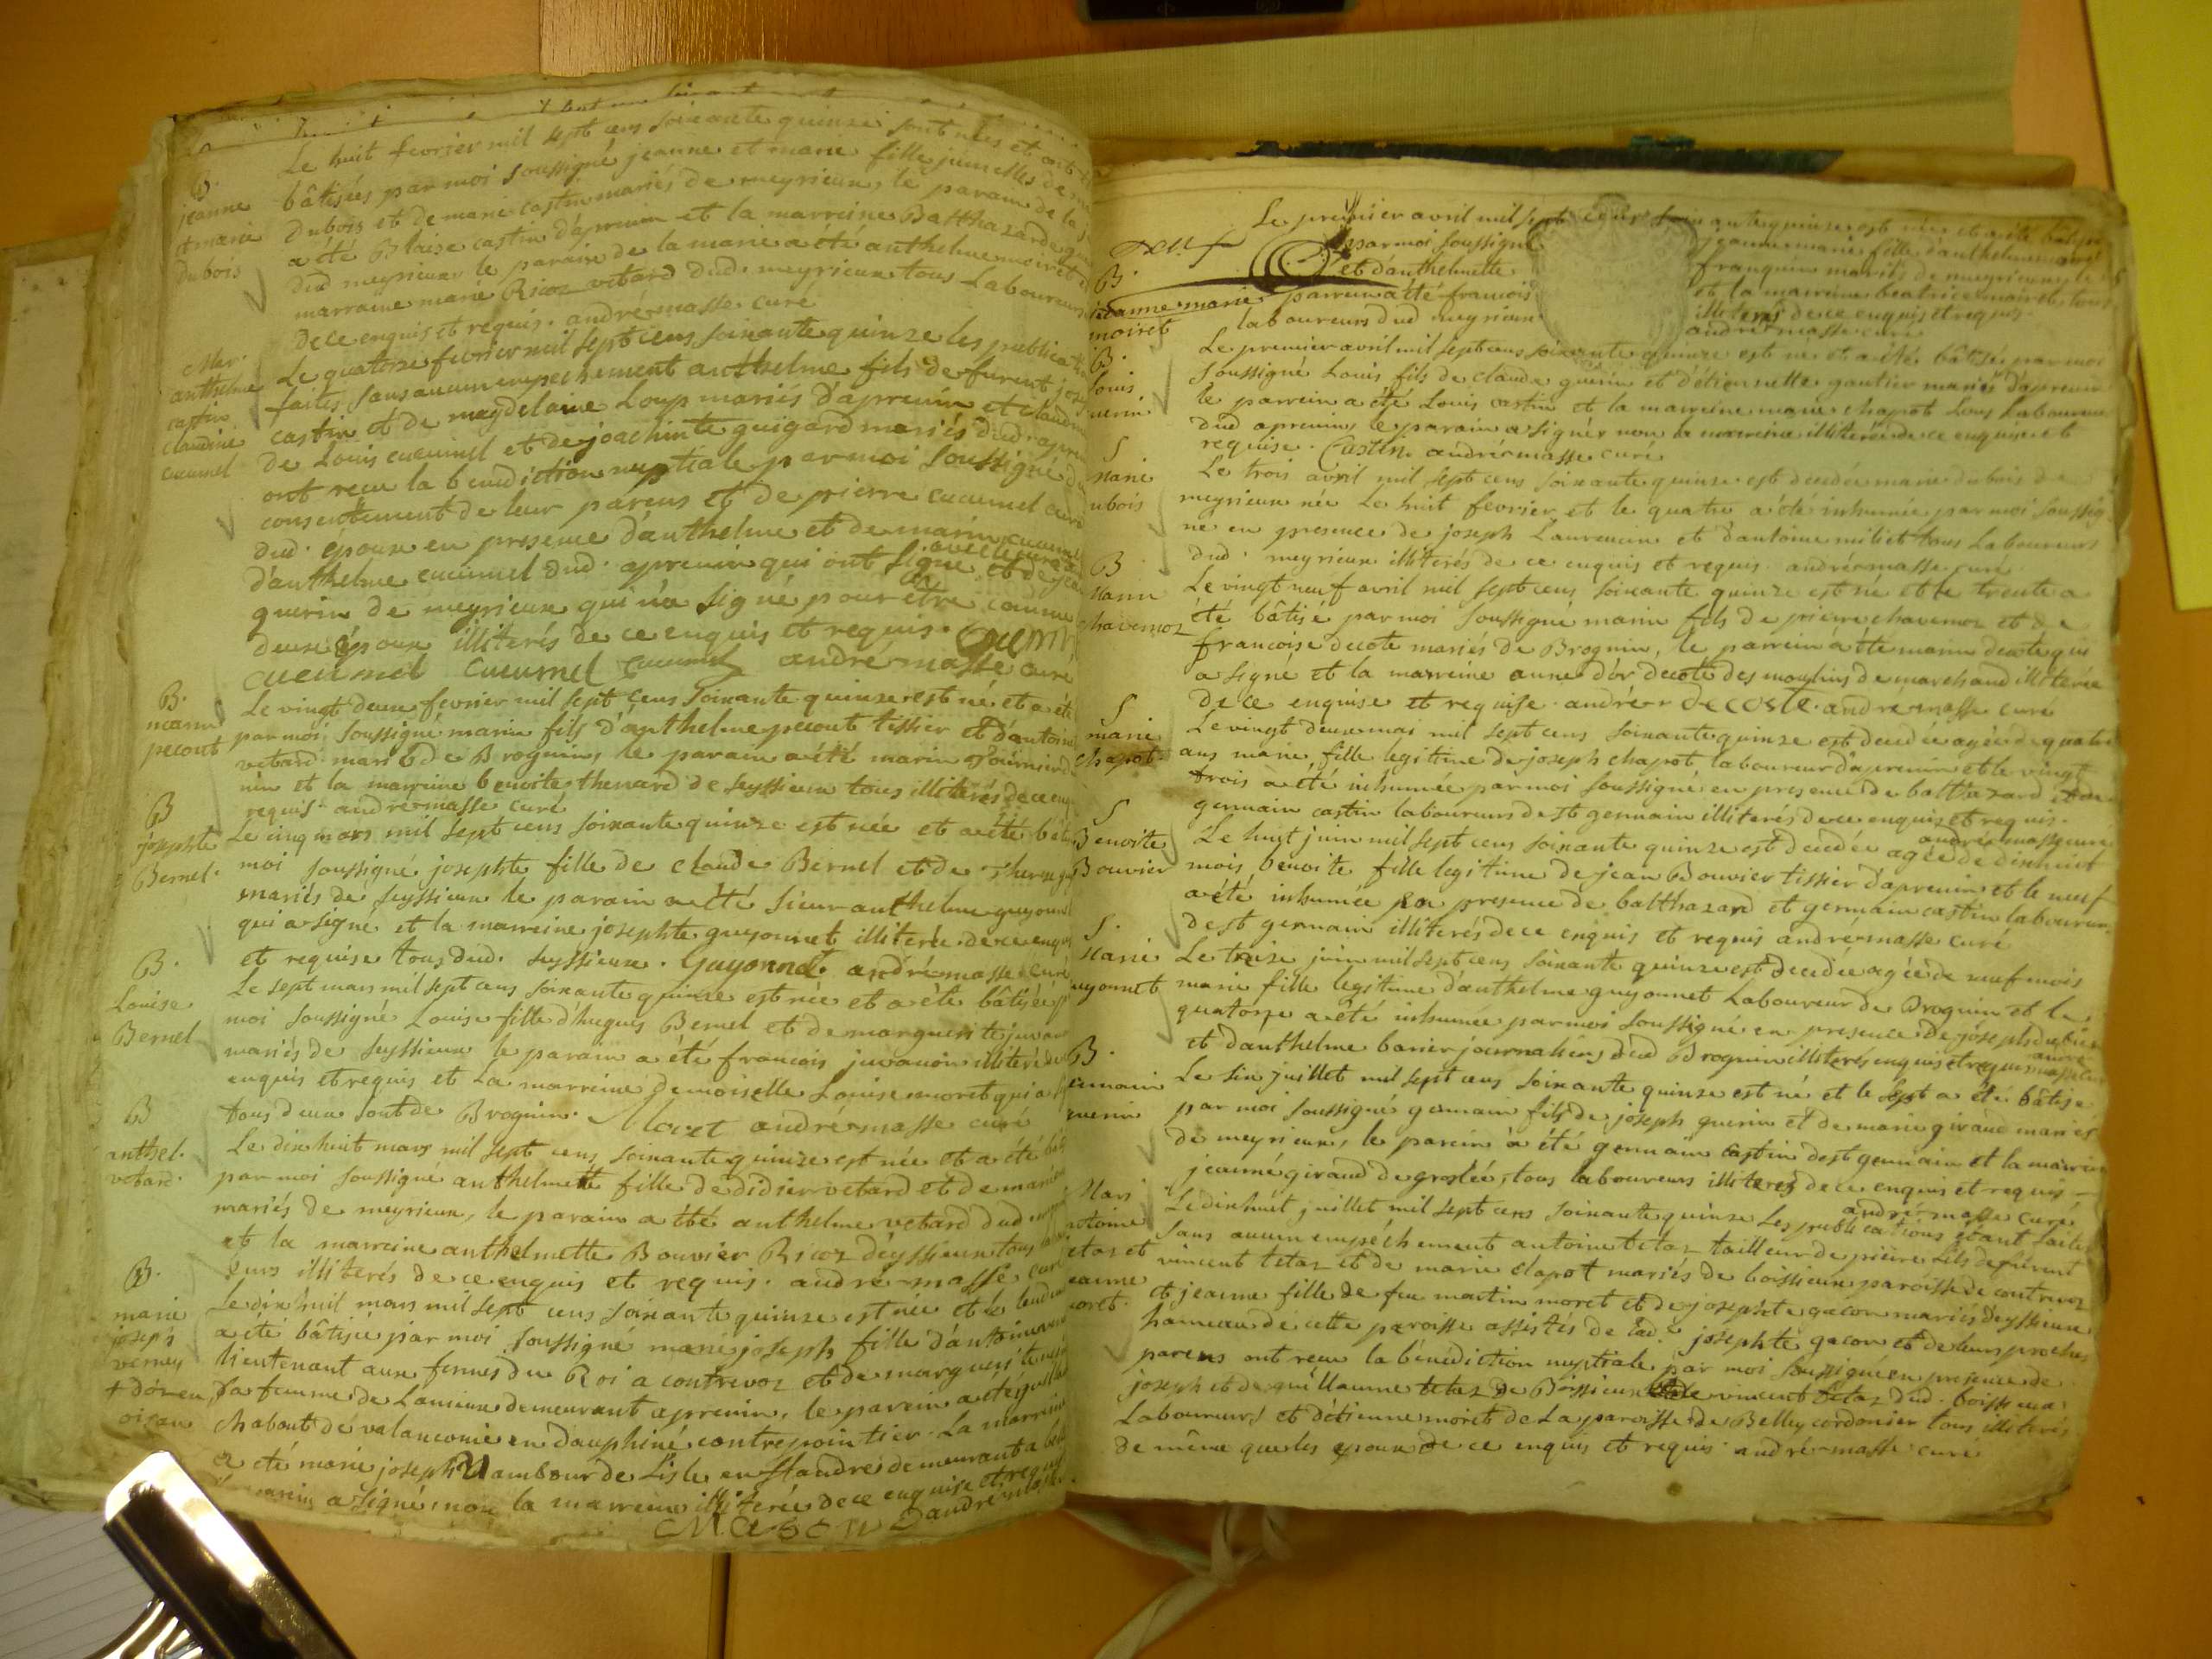 Le huit fevrier mil sept cens soixante quinze sont nées et ont
B.
jeanne
et marie
Dubois
bâtisées par moi soussigné jeanne et marie fille jumelles de
Dubois et de marie castin mariés de meyrieux, le parain de la
a été Blaise castin d'apremin et la marreine Balthazarde
dud meyrieux le parain de la marie a été anthelme moiret
marraine marie Ricoz vetard dud. meyrieux tous Laboureurs
de ce enquis et requis. andré masse curé
Mar.
anthelme
castin
claudine
cucumel
Le quatorze fevrier mil sept cens soixante quinze les publica
faites sans aucun empechement anthelme fils de furent
castin et de magdelaine Loup mariés d'apremin et claudine
de Louis cucumel et de joachinte guigard mariés dud apre
ont reçu la benediction nuptiale par moi soussigné du
consentement de leur parens et de pierre cucumel
dud. épouse en presence d'anthelme et de marin cucumel
d'anthelme cucumel dud. apremin qui ont signé et de
guerin de meyrieux qui n'a signé pour être comme
deux époux illiterés de ce enquis et requis.
cucumel cucumel cucumel andré masse curé
B.
marin
pecout
Le vingt deux fevrier mil sept cens soixante quinze est né et a été
par moi soussigné marin fils d'anthelme pecout tissier et d'antoi
vetard mariés de Brognin, le parain a été marin fournier
nin et la marreine benoite thenard de seyssieux tous illiterés de ce en
requis. andré masse curé
B
josephte
Bernel.
Le cinq mars mil sept cens soixante quinze est née et a été bâti
moi soussigné josephte fille de claude Bernel et de Therese
mariés de seyssieux le parain a été sieur anthelme guyonnet
qui a signé et la marreine josephte guyonnet illiterée de ce enqui
et requise tous dud. seyssieux. Guyonnet andré masse curé
B.
Louise
Bernel
Le sept mars mil sept cens soixante quinze est née et a été bâtisée p
moi soussigné Louise fille d'hugues Bernel et de marguerite
mariés de seyssieux le parain a été francois juvanon illiteré de ce
enquis et requis et la marreine demoiselle Louise moret qui a
tous deux sont de Brognin. Moret andré masse curé
B
anthel.
vetard.
Le dix huit mars mil sept cens soixante quinze est née et a été
par moi soussigné anthelmette fille de didier vetard et de marie
mariés de meyrieux, le parain a été anthelme vetard dud
et la marreine anthelmette Bouvier Ricoz d'eyssieux tous
eurs illiterés de ce enquis et requis. andré masse curé
B.
marie
joseph
verney
Le dix huit mars mil sept cens soixante quinze est née et le lendem
a été bâtisée par moi soussigné marie joseph fille d'antoine
lieutenant aux fermes du Roi a contrevoz et de marguerite
sa femme de Lanieux demeurant apremin, le parein a été guilla
chabout de valanconie en dauphiné contrepointier. La marreine
a été marie joseph Uambour de Lisle en flandre demeurant a
a signé, non la marreine illiterée de ce enquise et requise
andré masse
Le premier avril mil sept cens soixante quinze est née et a été bâtisée
B.
jeanne marie
moiret
par moi soussigné jeanne marie fille d'anthelme moiret
et d'anthelmette franquin mariés de meyrieux, le
parrein a été francois et la marreine beatrice moiret tous
laboureurs dud meyrieux illiterés de ce enquis et requis.
andré masse curé
B.
Louis
uerin
Le premier avril mil sept cens soixante quinze est né et a été bâtisé par moi
soussigné Louis fils de claude guerin et d'étiennette gautier mariés d'apremin
le parrein a été Louis castin et la marreine marie chapot tous Laboureurs
dud apremin, le parain a signé, non la marreine illiterée de ce enquise et
requise. Castin andré masse curé
S
Marie
ubois
Le trois avril mil sept cens soixante quinze est decedée marie dubois de
meyrieux née Le huit fevrier et le quatre a été inhumée par moi soussig
né en presence de joseph Laurencin et d'antoine miliet tous Laboureurs
dud. meyrieux illiterés de ce enquis et requis. andré masse curé
B
Marin
chavernoz
Le vingt neuf avril mil sept cens soixante quinze est né et le trente a
été bâtisé par moi soussigné marin fils de pierre chavernoz et de
francoise decote mariés de Brognin, le parrein a été marin decote qui
a signé et la marreine anne d'or decote des moulins de marchand illiterée
de ce enquise et requise. andré DECOSTE. andré masse curé
S
marie
chapot.
Le vingt deux mai mil sept cens soixante quinze est decedée agée de quatre
ans marie, fille legitime de joseph chapot laboureur d'apremin et le vingt
trois a été inhumée par moi soussigné en presence de balthazard et de
germain castin laboureurs de st germain illiterés de ce enquis et requis.
andré masse curé
S
Benoite
Bouvier
Le huit juin mil sept cens soixante quinze est decedée agée de dix huit
mois benoite fille legitime de jean Bouvier tissier d'apremin et le neuf
a été inhumée en presence de balthazard et germain castin laboureurs
de st germain illiterés de ce enquis et requis andré masse curé
S.
Marie
uyonnet
Le treize juin mil sept cens soixante quinze est decedée agée de neuf mois
marie fille legitime d'anthelme guyonnet Laboureur de Brognin et le
quatorze a été inhumée par moi soussigné en presence de joseph dubien
et d'anthelme barier journaliers dud Brognin illiterés enquis et requis andré masse curé
B.
ermain
uerin
Le six juillet mil sept cens soixante quinze est né et le sept a été bâtisé
par moi soussigné germain fils de joseph guerin et de marie giraud mariés
de meyrieux, le parein a été germain castin de st germain et la marrein
jeanne giraud de groslée, tous laboureurs illiterés de ce enquis et requis
andré masse curé
Mari
ntoine
etaz et
eanne
oret.
Le dix huit juillet mil sept cens soixante quinze Les publications étant faites
sans aucun empéchement antoine tetaz tailleur de pierre fils de furent
vincent tetaz et de marie clapot mariés de boissieux paroisse de contrevoz
et jeanne fille de feu martin moret et de josephte gacon mariés d'eyssieux
hameau de cette paroisse assistés de lad.e josephte gacon et de leurs proches
parens ont reçu la bénédiction nuptiale par moi soussigné en presence de
joseph et de guillaume tetaz de Boissieux vincent tetaz dud. boissieux
Laboureurs et d'étienne moret de la paroisse de Belley cordonier tous illiterés
de même que les epoux de ce enquis et requis. andré masse curé